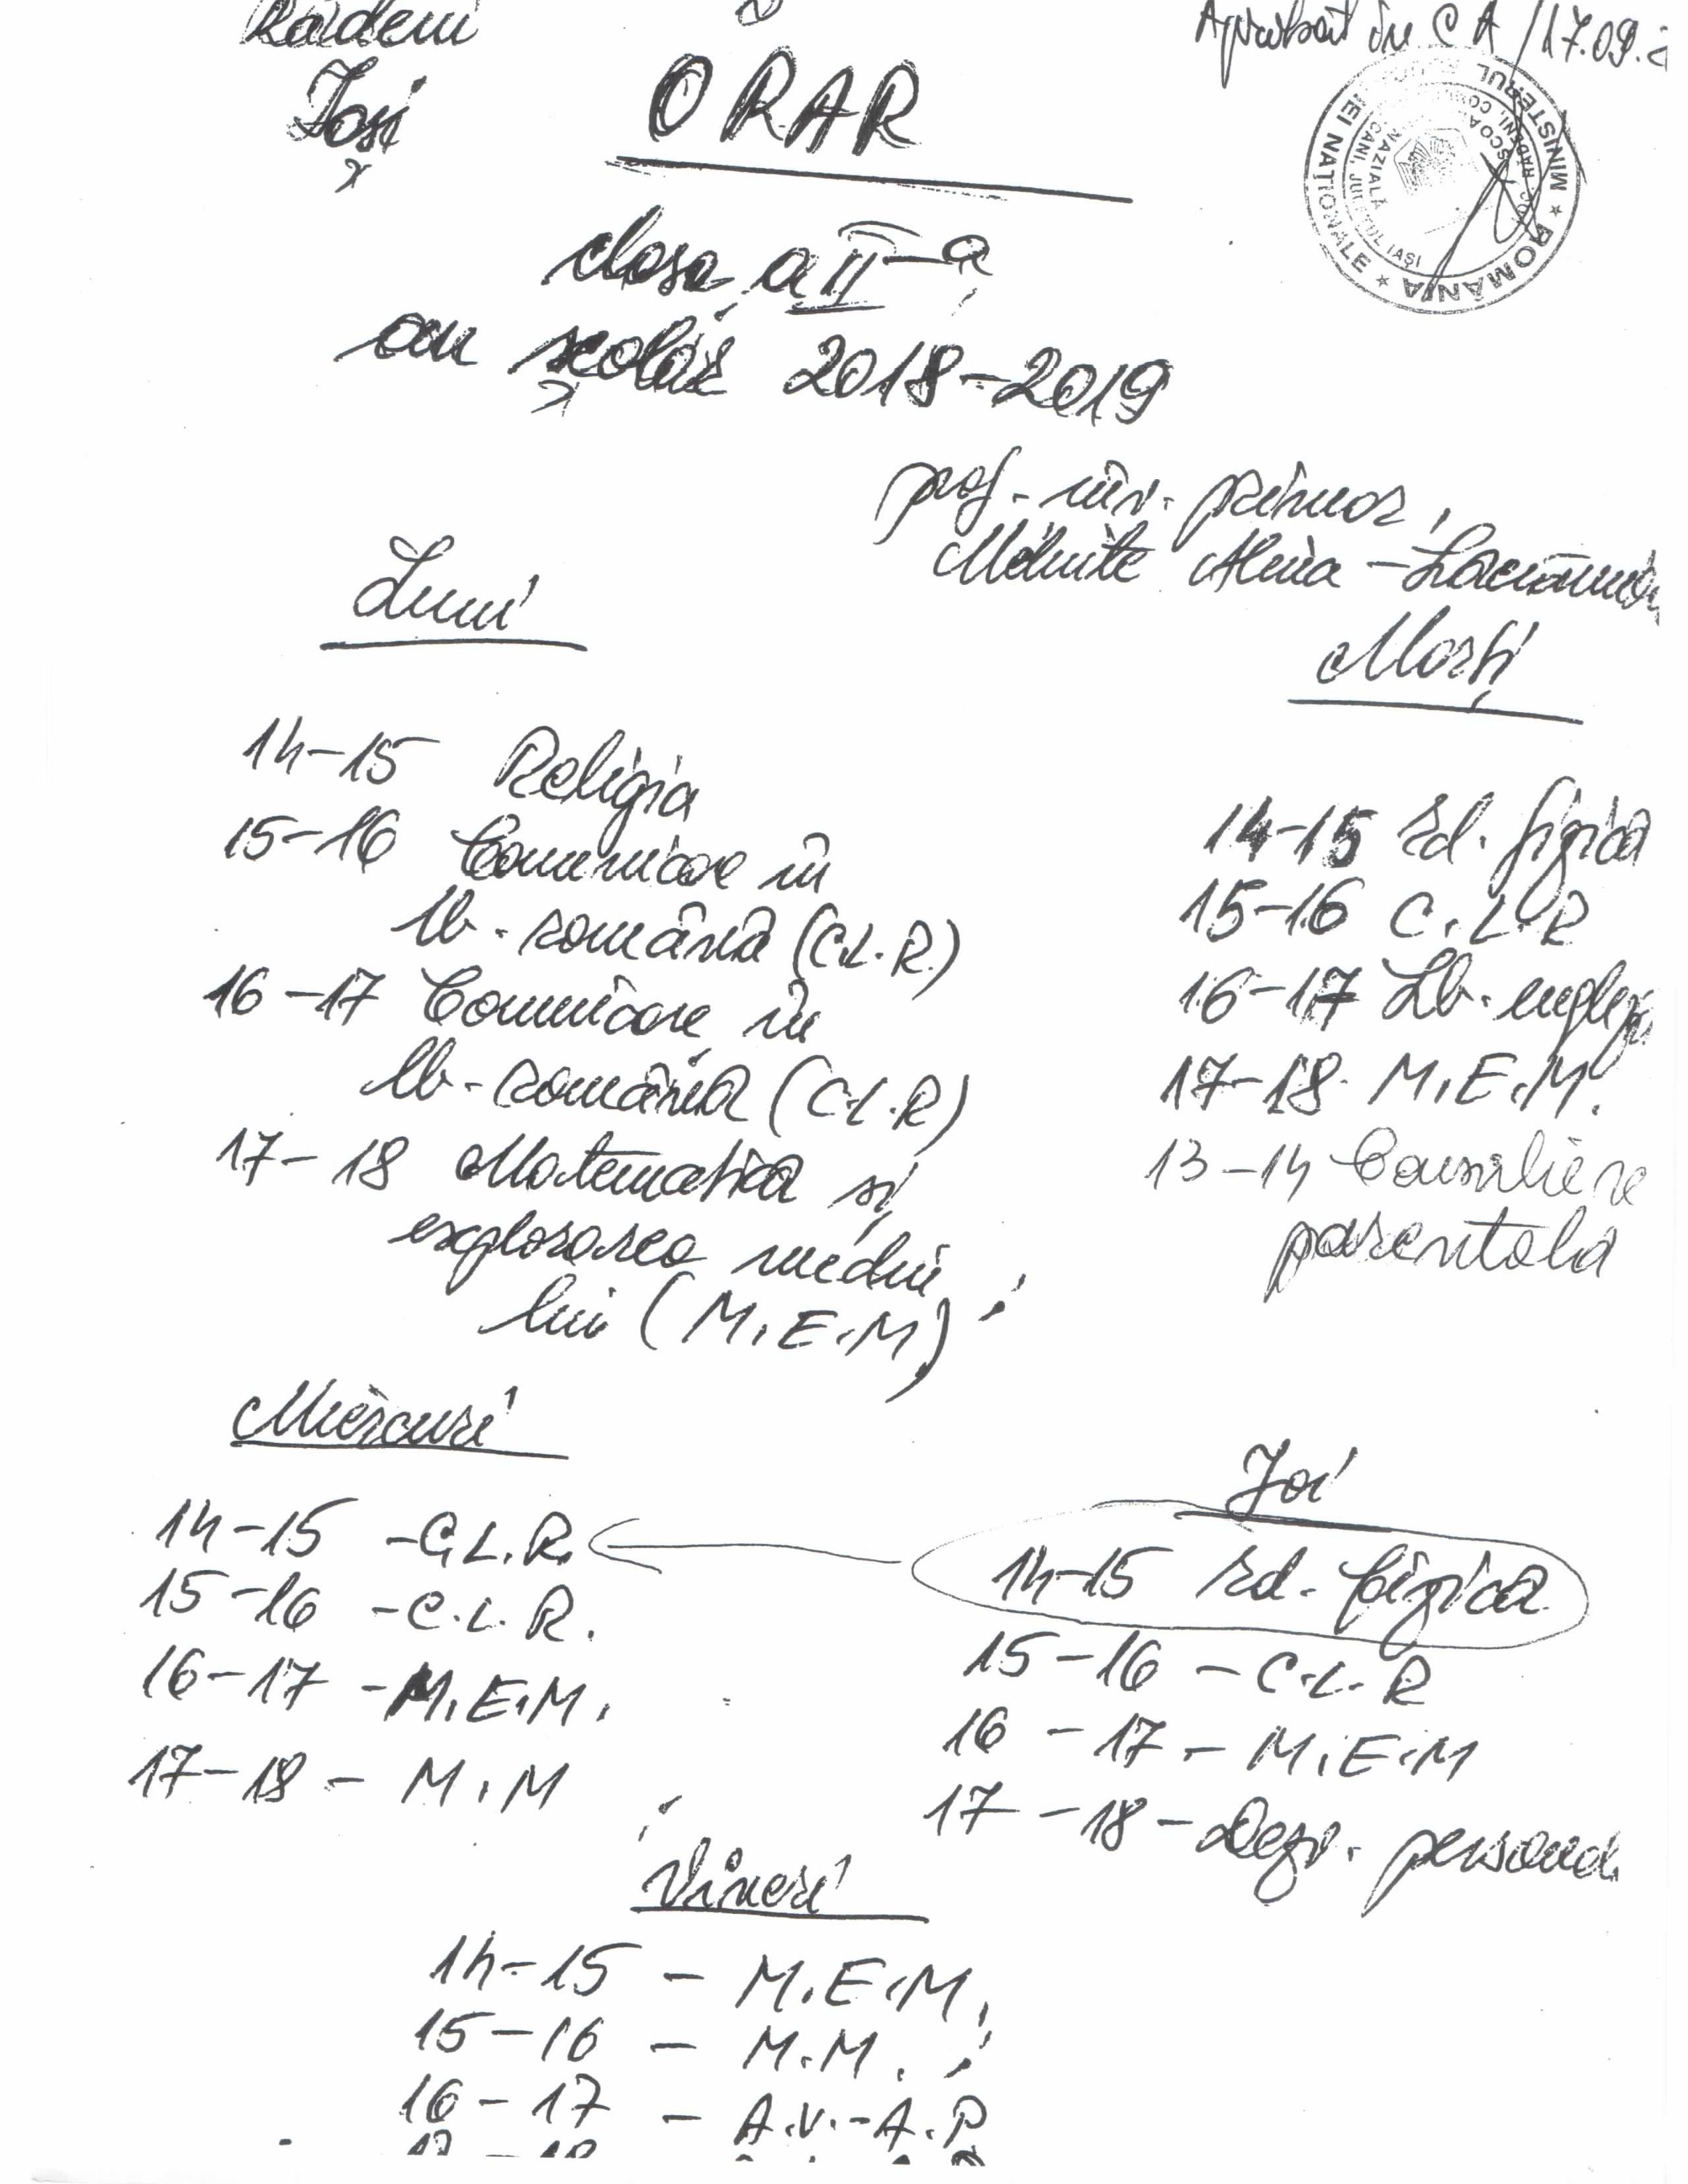 Rădeni
Iași
Aprobat în CA/17.09.2
ORAR
clasa a II-a
an școlar 2018-2019
prof. înv. primar,
Alina-Lăcrămioa
Luni
14-15 Religia
15-16 Comunicare în
lb. română (C.L.R.)
16-17 Comunicare în
lb. română (C.L.R)
17-18 Matematică și
explorarea mediu
lui (M.E.M)
Marți
14-15 Ed. fizică
15-16 C.L.R
16-17 Lb. engleză
17-18 M.E.M.
13-14 Consiliere
parentală
Miercuri
14-15 -C.L.R.
15-16 -C.L.R.
16-17 -M.E.M.
17-18 - M.M
Joi
14-15 Ed. fizică
15-16 - C.L.R
16-17 - M.E.M
17-18 - Dezv. personal
Vineri
14-15 - M.E.M.
15-16 - M.M.
16-17 - A.V.-A.P
ROMÂNIA * MINISTERUL
EI NAȚIONALE *